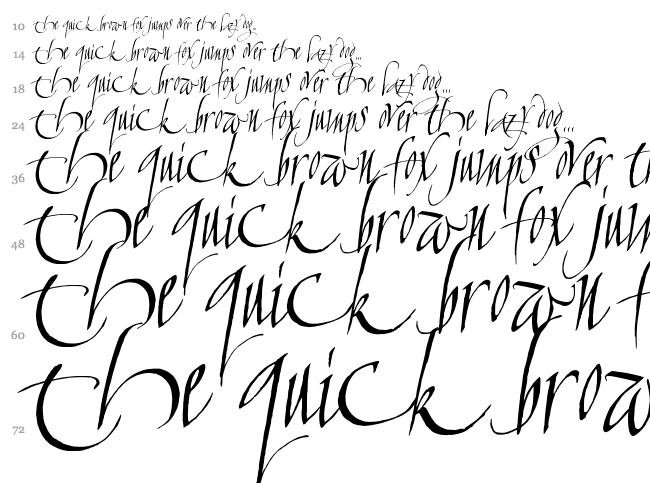 10 the quick brown fox jumps over the lazy dog...
14 the quick brown fox jumps over the lazy dog...
18 the quick brown fox jumps over the lazy dog...
24 the quick brown fox jumps over the lazy dog...
36 the quick brown fox jumps over th
48 the quick brown fox jum
60 the quick brown f
72 the quick brow